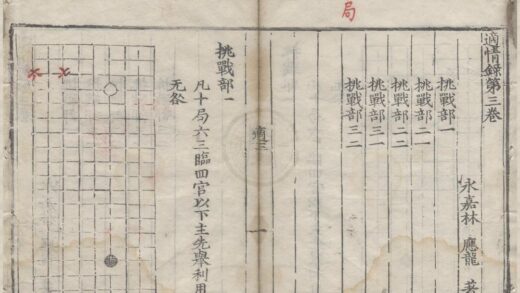 局
適情錄第三卷
永嘉林 應龍 著
挑戰部一
挑戰部二一
挑戰部二二
挑戰部三一
挑戰部三二
適三
一
挑戰部一
凡十局六三臨四官以下主先舉利用
无咎